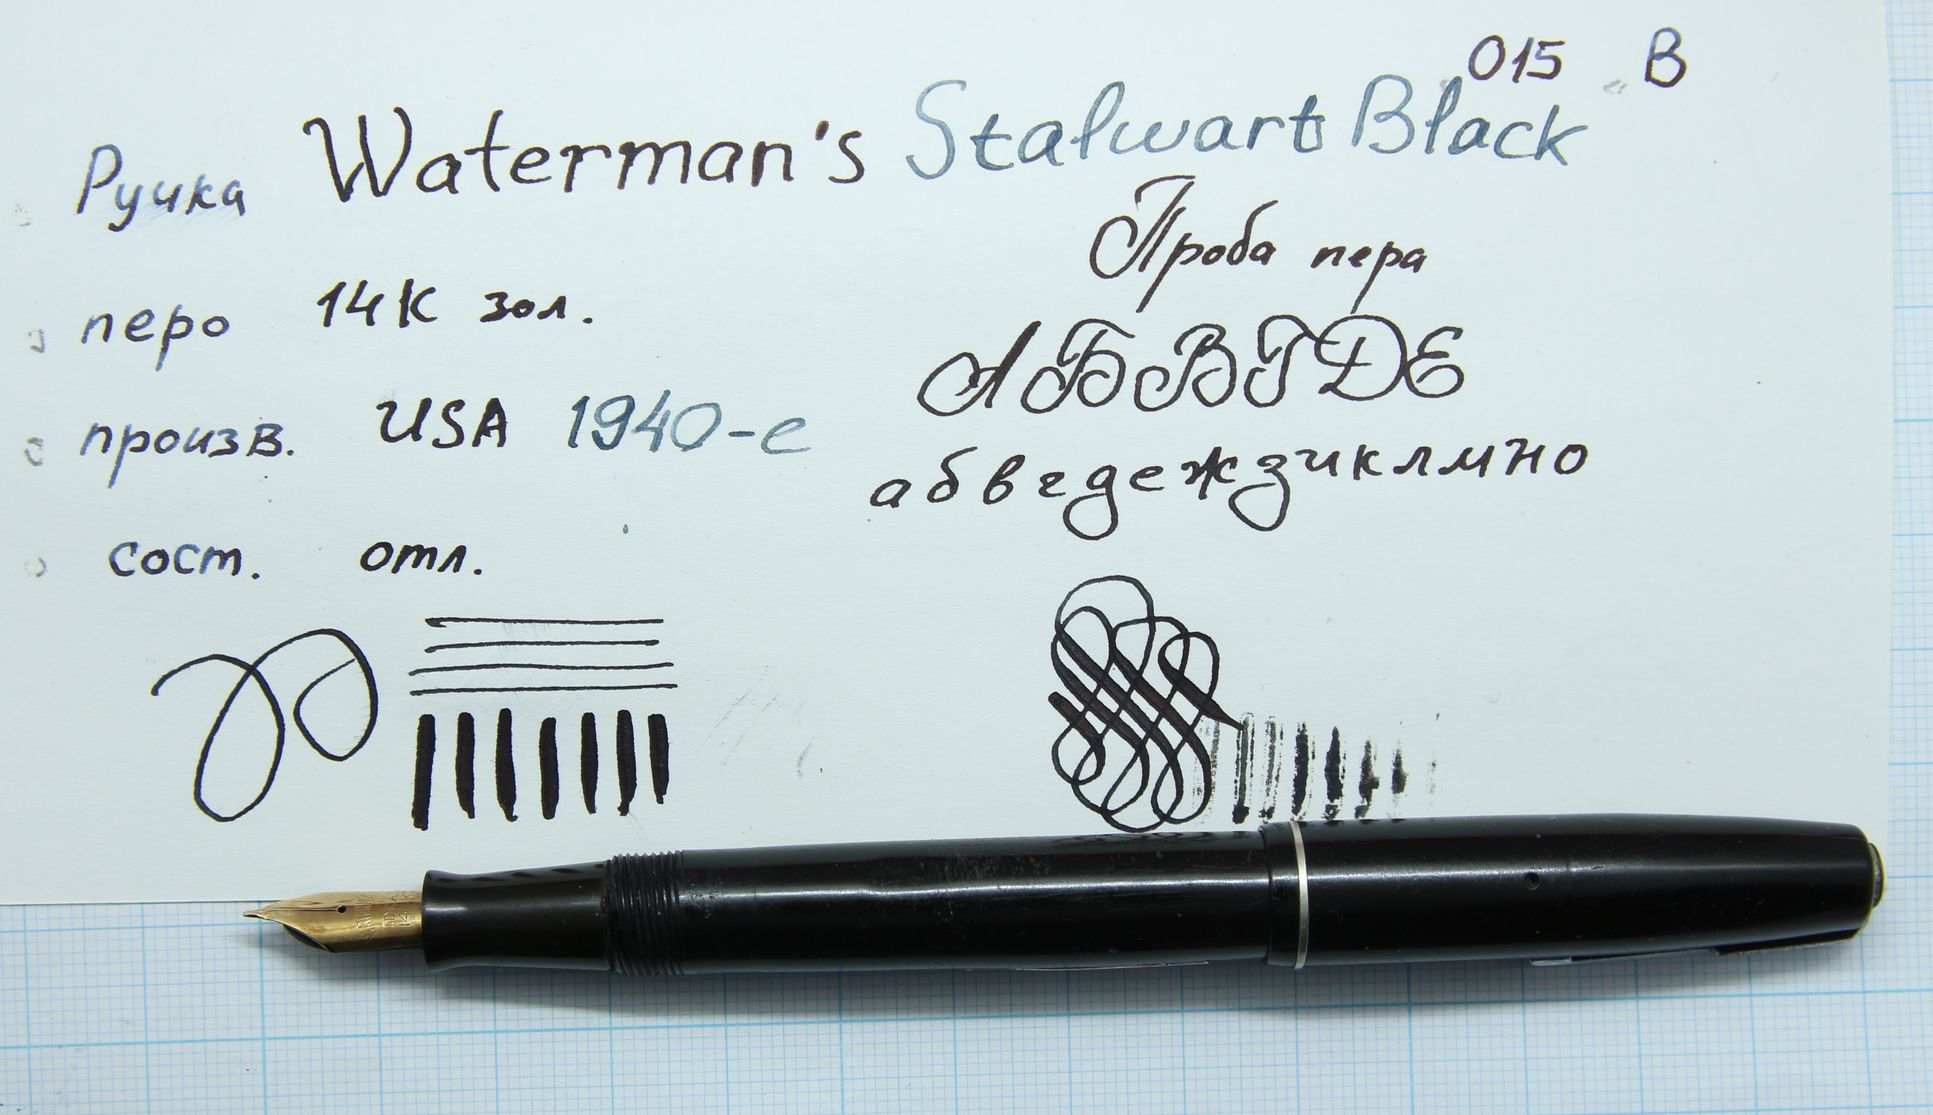 015 В
Ручка Waterman's Stalwart Black
Проба пера
перо 14К зол.
АБВГДЕ
произв. USA 1940-е
абвгдежзиклмно
сост. отл.